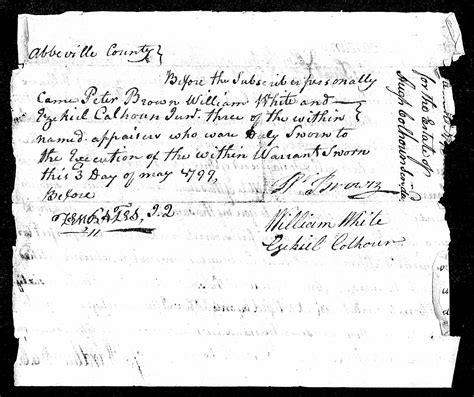 Abbeville County }
Before the Subscriber personally
Came Peter Brown William White and
Ezekiel Calhoun Junr. three of the within
named appraisers who ware Duly Sworn to
the Execution of the within Warrant Sworn
this 3 Day of may 1799,
Before
J. Q.
Pr Brown
William White
Ezekiel Calhoun
for the Estate of
Hugh Calhoun